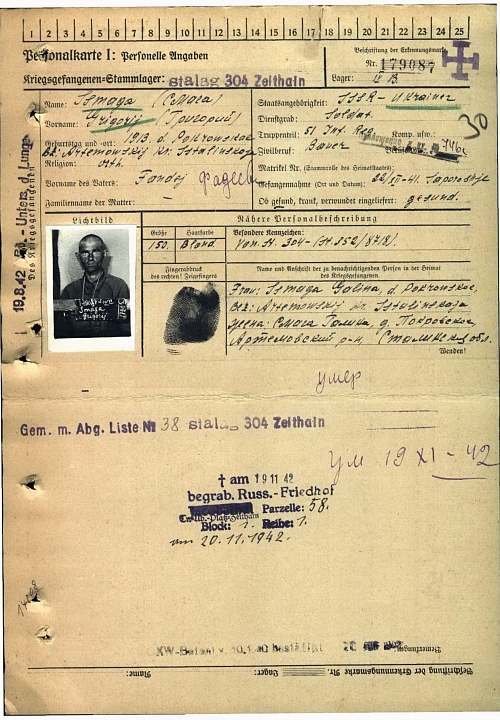 1 2 3 4 5 6 7 8 9 10 11 12 13 14 15 16 17 18 19 20 21 22 23 24 25
Personalkarte I: Personelle Angaben
Beschriftung der Erkennungsmarke
Nr. 179087
Kriegsgefangenen-Stammlager: stalag 304 Zeithain
Lager: IV B
Name: Ssmaga (Смага)
Staatsangehörigkeit: SSSR - Ukrainer
Vorname: Grigorij (Григорий)
Dienstgrad: Soldat
30
Geburtstag und -ort: 1913. d. Pokrowskoe
Truppenteil: 51 Inf. Reg. Komp. usw.:
Bz. Artemowskij Kr. Sstalinskoja
Zivilberuf: Bauer
Religion: orth.
Matrikel Nr. (Stammrolle des Heimatstaates):
Vorname des Vaters: Fadej Фадей
Gefangennahme (Ort und Datum): Saporoshje
Familienname der Mutter:
Ob gefund, krank, verwundet eingeliefert: gesund.
19.8.42 Rö.-Unters. d. Lunge
Des Kriegsgefangenen
Lichtbild
Nähere Personalbeschreibung
Größe Haarfarbe
Besondere Kennzeichen:
150. Blond.
Von St. 304 - (St. 352/8718).
Fingerabdruck
des rechten! Zeigefingers
Name und Anschrift der zu benachrichtigenden Person in der Heimat
des Kriegsgefangenen
Ssmaga
Grigorij
Frau: Ssmaga Galina, d. Pokrowskoe,
Bez. Artemowskij Kr. Sstalinskoja
жена: Смага Галина, д. Покровское,
Артемовский р-н, Сталинская обл.
Wenden!
умер
Gem. m. Abg. Liste № 38 stalag 304 Zeithain
ум 19 XI-42
† am 19 11 42
begrab. Russ.-Friedhof
Parzelle: 58.
Tr.-Üb.-Platz Zeithain
Block: 1. Reihe: 1.
am 20.11.1942.
OKW-Befehl v. 10.1.40 bestätigt
Bemerkungen:
Name:
Lager:
Beschriftung der Erkennungsmarke Nr.